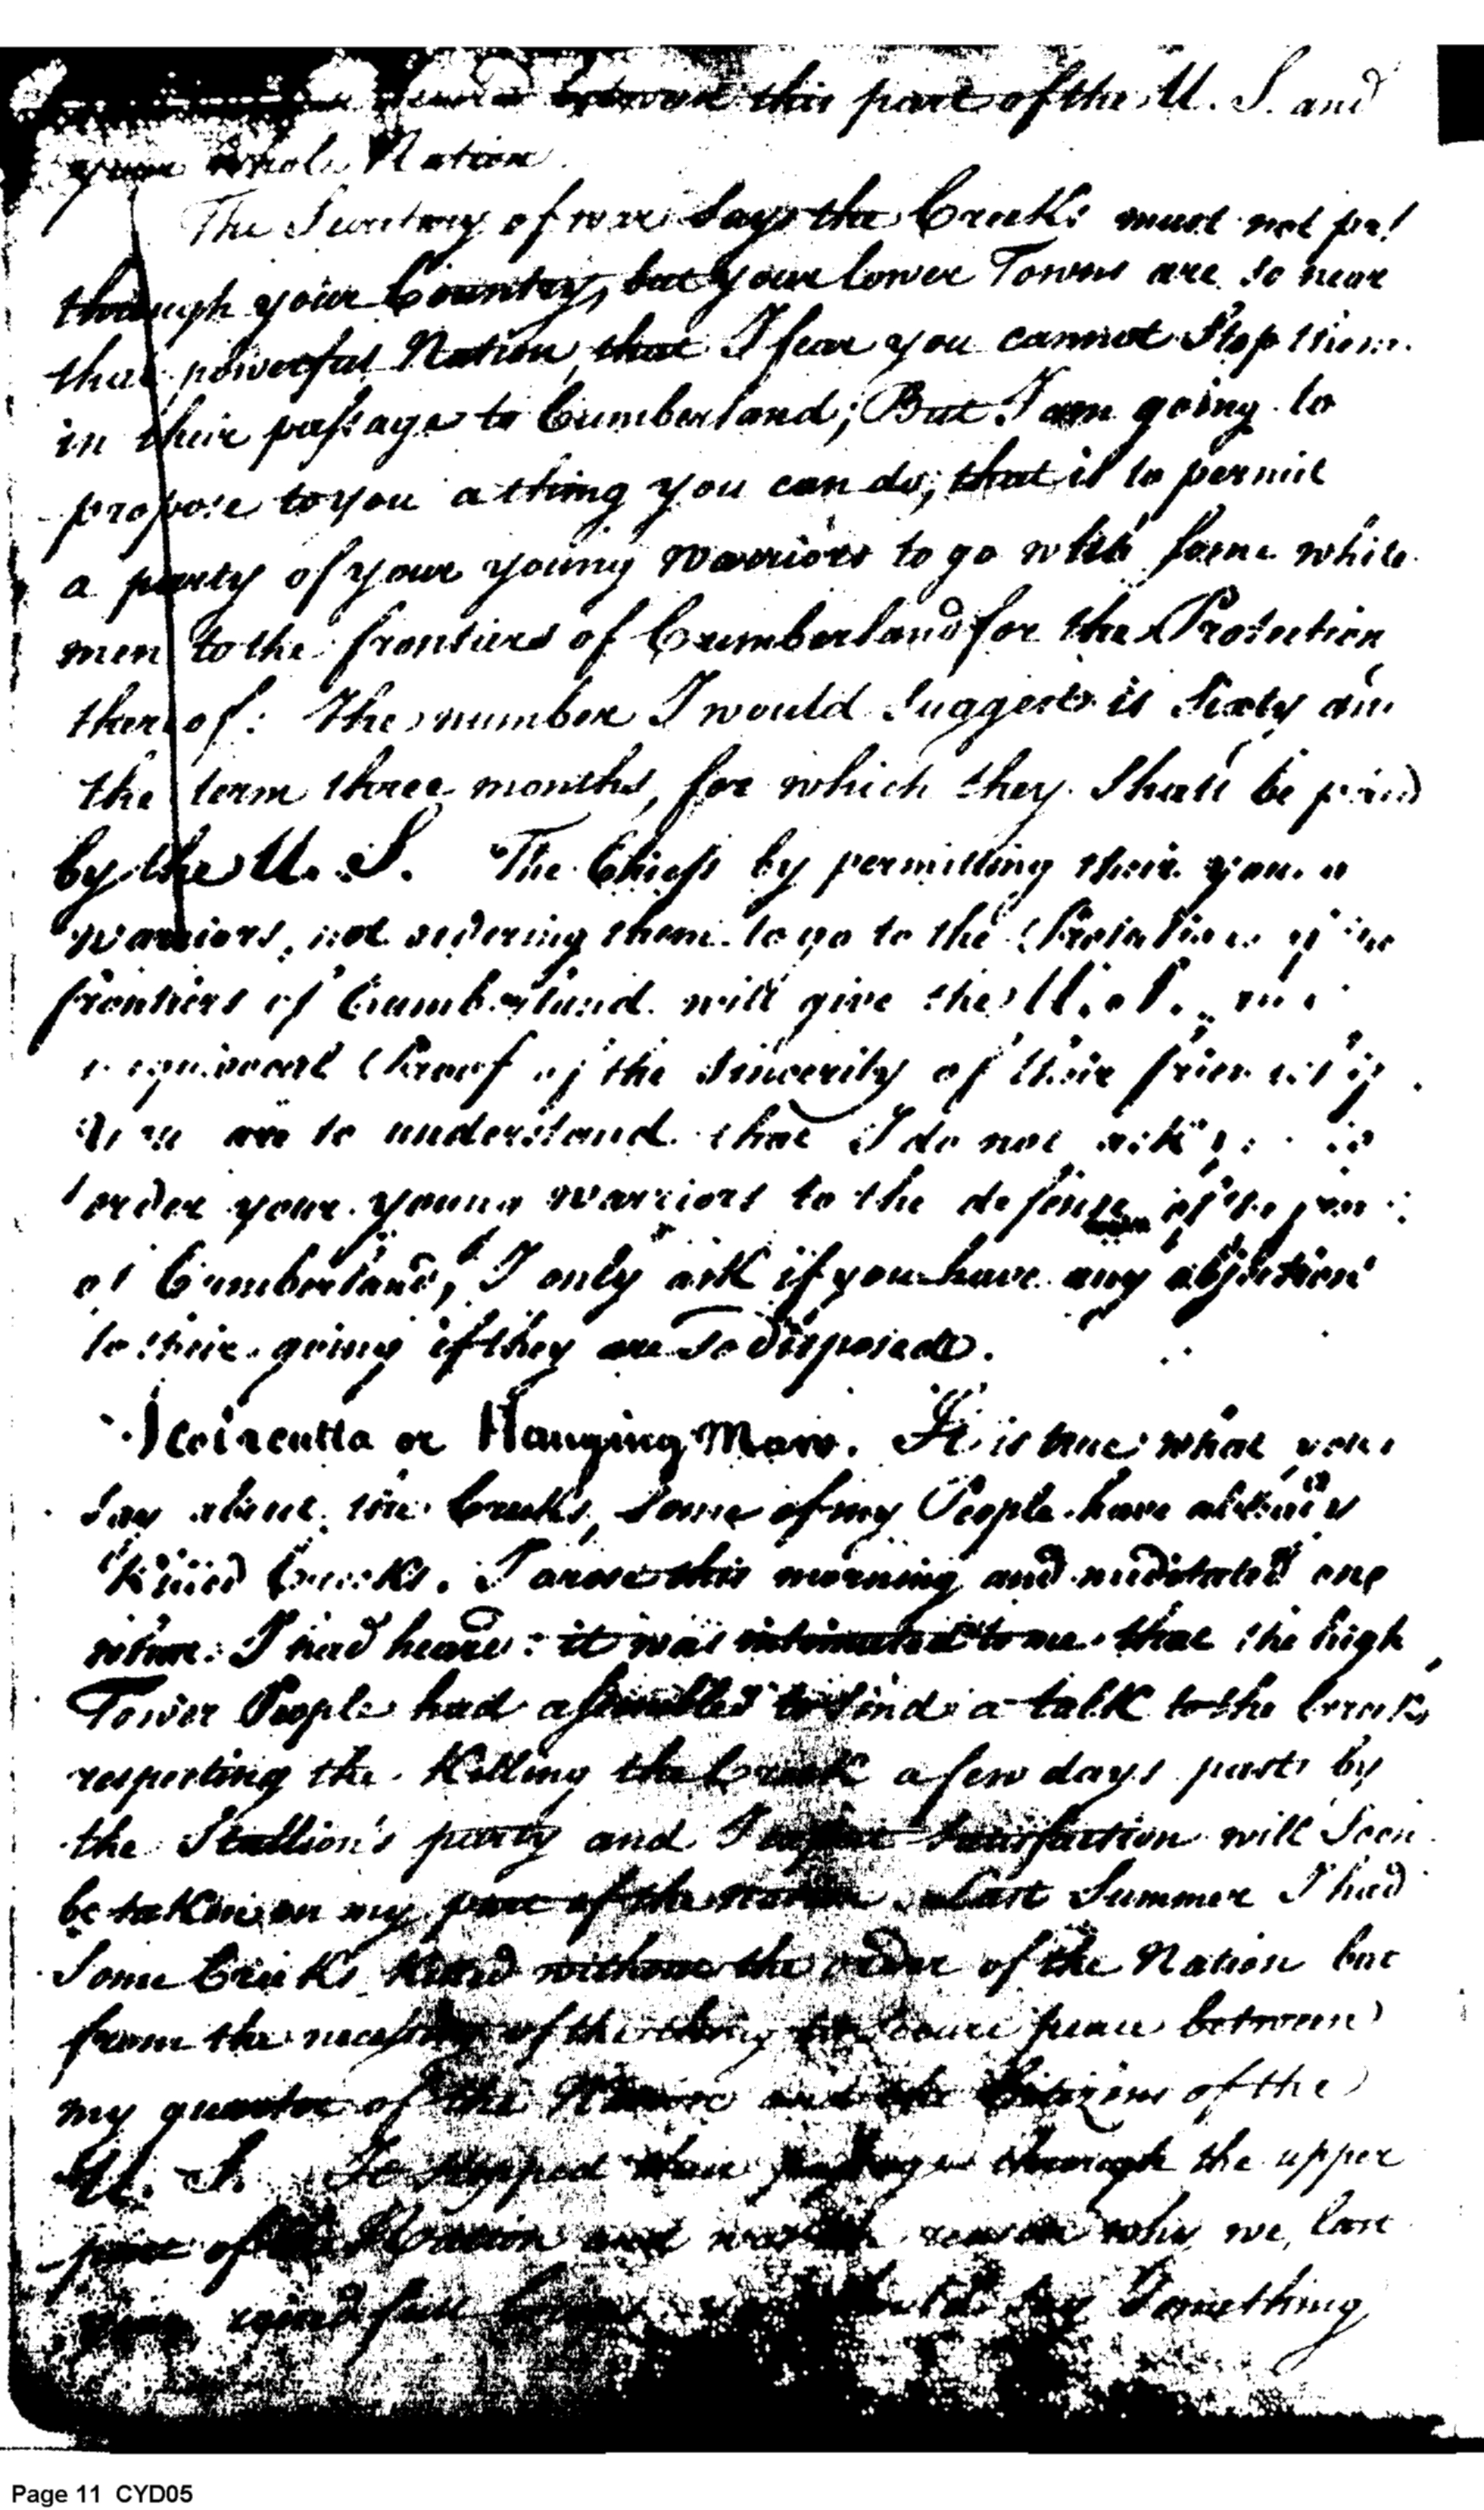 between this part of the U. S. and
your whole Nation.
The Secretary of war says the Creeks must not pass
through your Country, but your lower Towns are so near
that powerful Nation, that I fear you cannot Stop them
in their passage to Cumberland; But I am going to
propose to you a thing you can do; that is to permit
a party of your young warriors to go with some white
men to the frontiers of Cumberland for the Protection
thereof: The number I would Suggest is Sixty and
the term three months, for which they Shall be paid
by the U. S. The Chiefs by permitting their young
warriors, not ordering them to go to the Protection of the
frontiers of Cumberland will give the U. S.
unequivocal Proof of the Sincerity of their friendship.
You are to understand that I do not ask you to
order your young warriors to the defense of the
of Cumberland, I only ask if you have any objection
to their going if they are So disposed.
Scolacutta or Hanging Maw. It is true what you
Say about the Creeks, Some of my People have already
killed Creeks. I arose this morning and meditated one
I had heard: it was intimated to me that the high
Tower People had assembled to Send a talk to the Creeks
respecting the Killing the Creek a few days past by
the Stallion's party and I expect Satisfaction will Soon
be taken on my part of the nation. Last Summer I had
Some Creeks Killed without the order of the Nation but
from the necessity of the thing to Secure peace between
my quarter of the Nation and the Citizens of the
U. S. It Stopped their passage through the upper
part of the Nation and was the reason why we last
Something
Page 11 CYD05